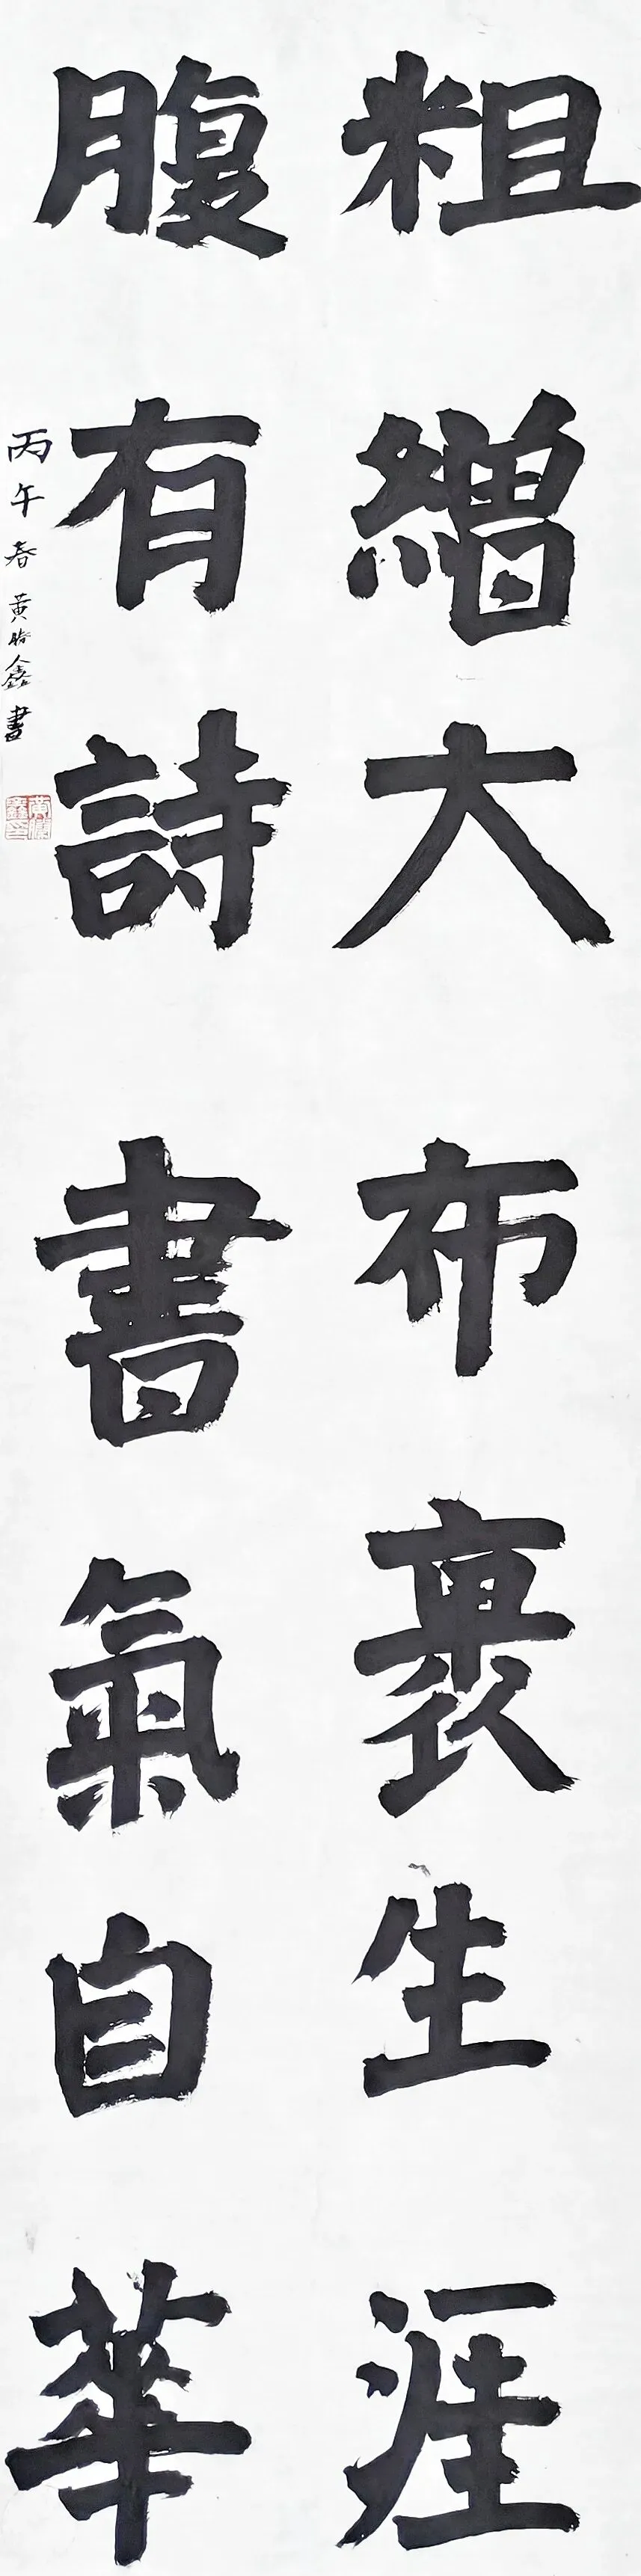 粗繒大布裹生涯
腹有詩書氣自華
丙午春黃鑫書